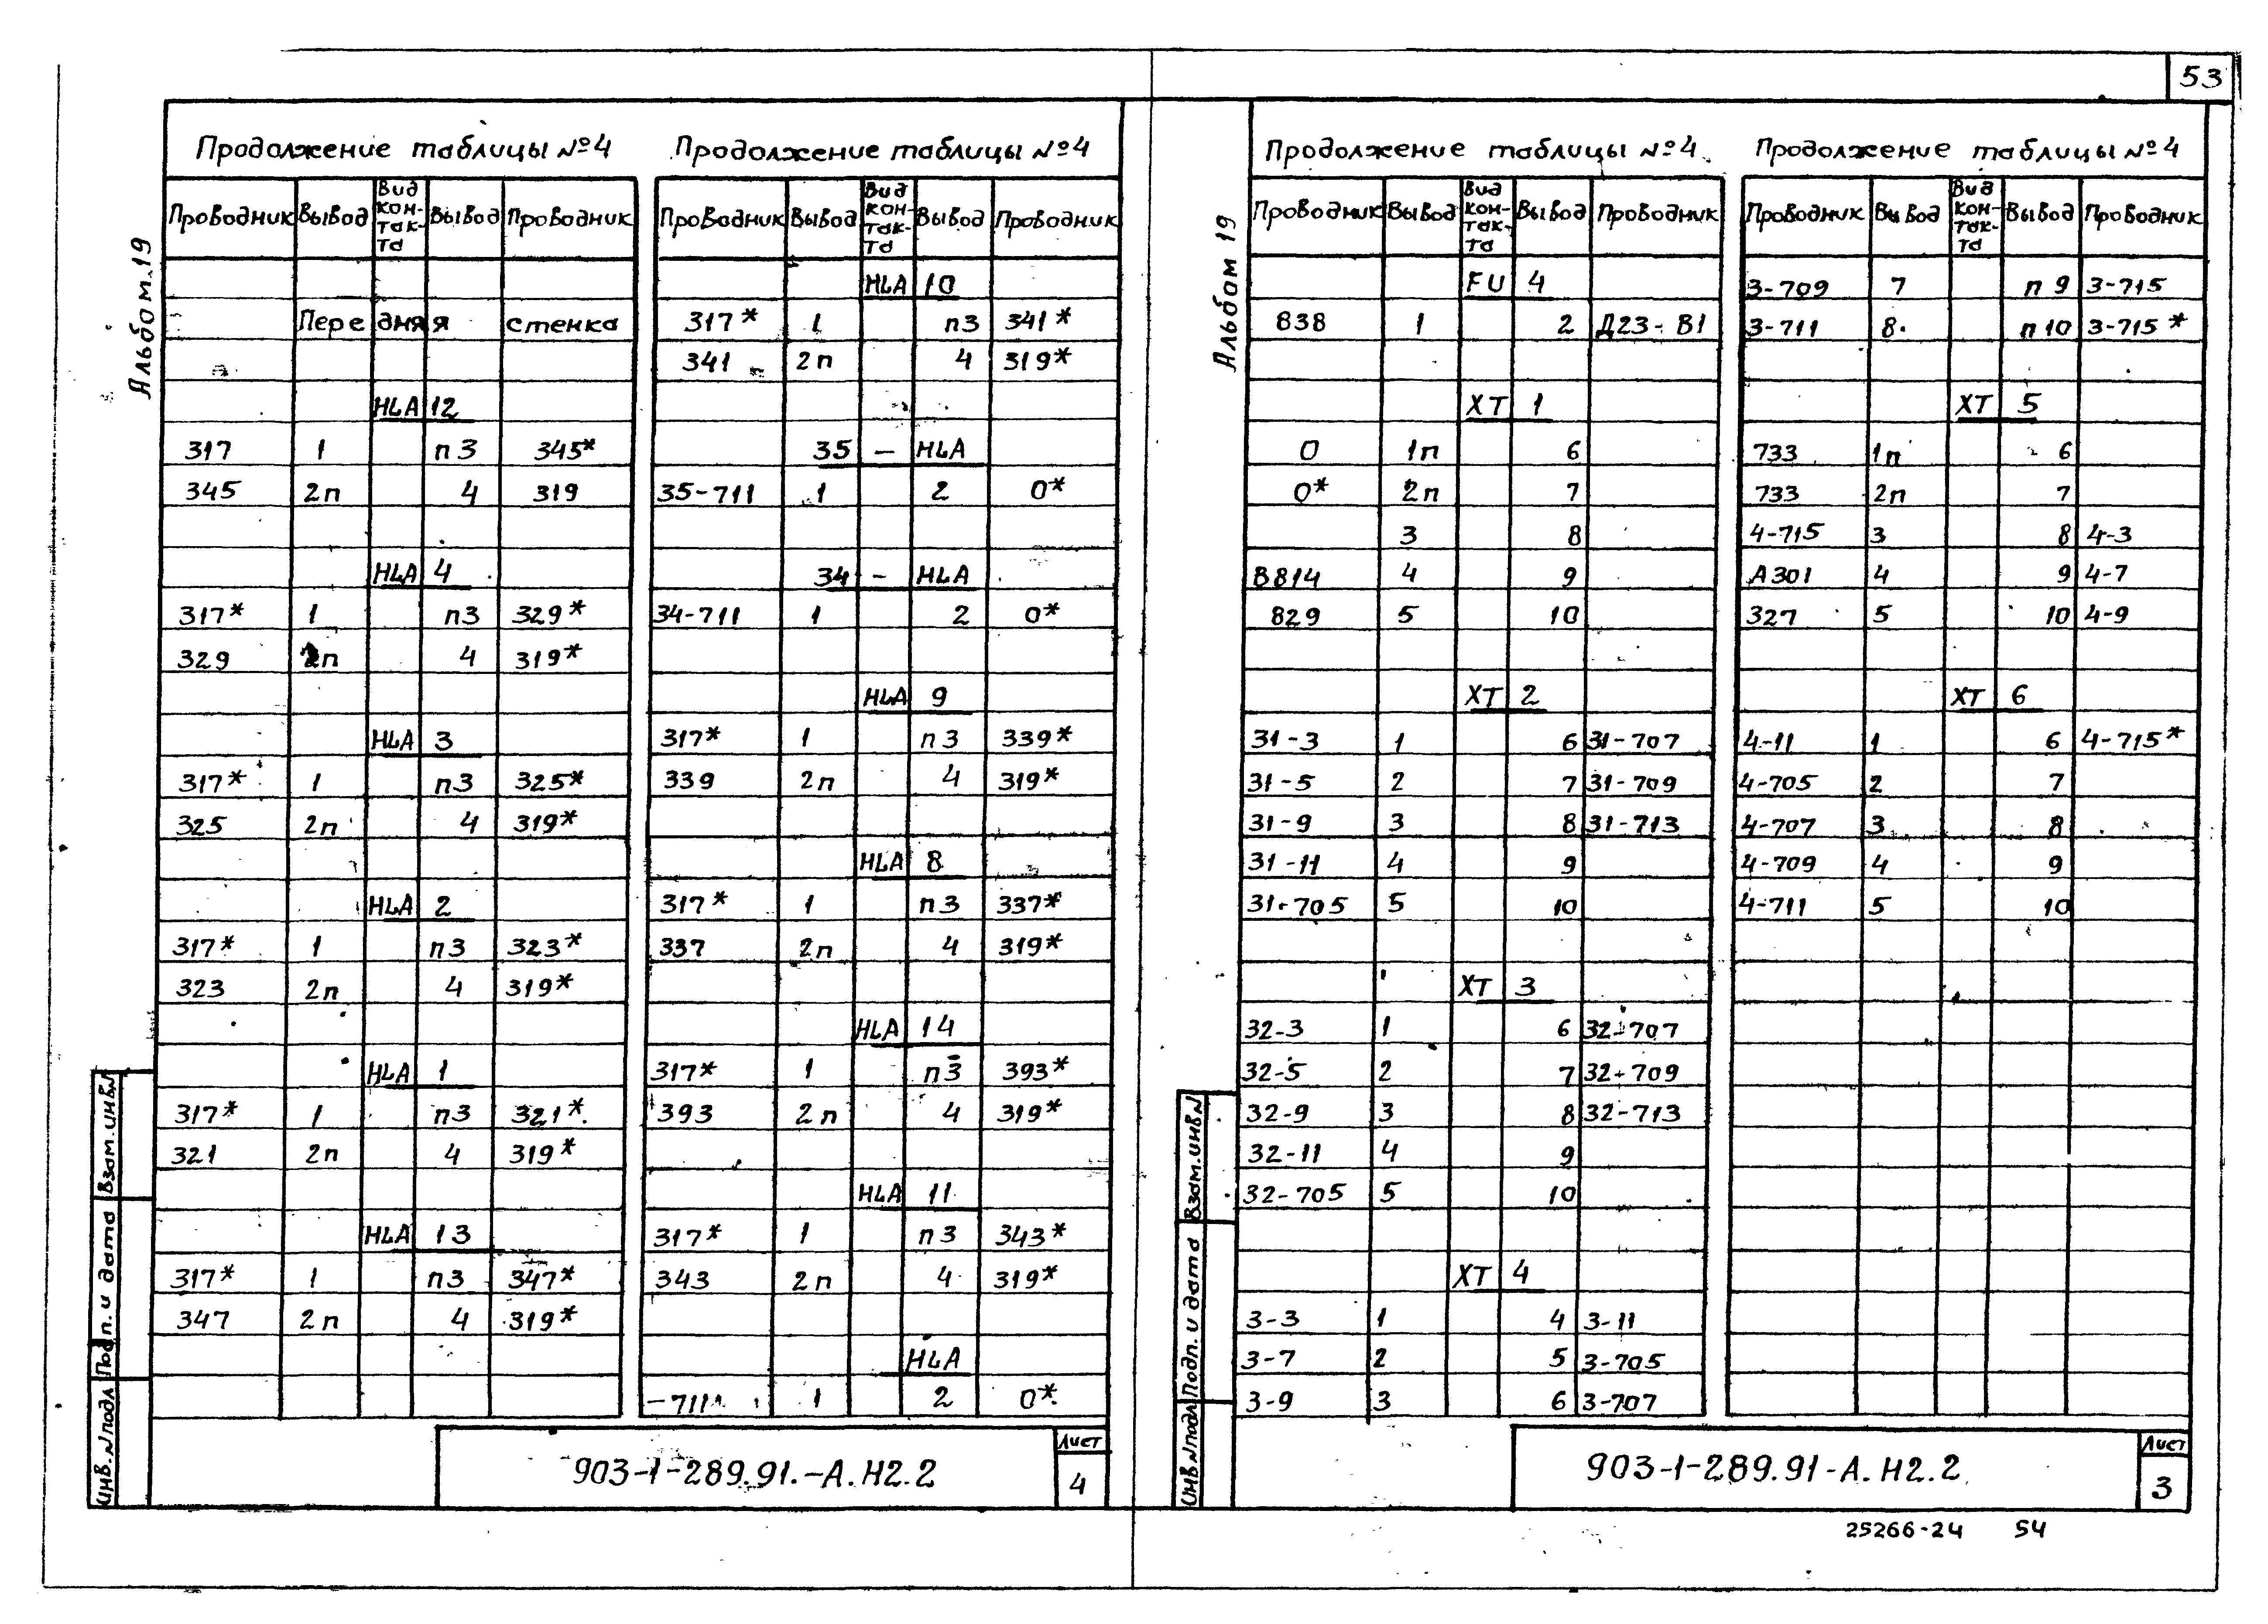 53
Альбом.19
Продолжение таблицы №4
Проводник Вывод Вид кон-так-та Вывод Проводник
Передняя стенка
HLA 12
317 1 п3 345*
345 2п 4 319
HLA 4
317* 1 п3 329*
329 2п 4 319*
HLA 3
317* 1 п3 325*
325 2п 4 319*
HLA 2
317* 1 п3 323*
323 2п 4 319*
HLA 1
317* 1 п3 321*
321 2п 4 319*
HLA 13
317* 1 п3 347*
347 2п 4 319*
Продолжение таблицы №4
Проводник Вывод Вид кон-так-та Вывод Проводник
HLA 10
317* 1 п3 341*
341 2п 4 319*
35 - HLA
35-711 1 2 0*
34 - HLA
34-711 1 2 0*
HLA 9
317* 1 п3 339*
339 2п 4 319*
HLA 8
317* 1 п3 337*
337 2п 4 319*
HLA 14
317* 1 п3 393*
393 2п 4 319*
HLA 11
317* 1 п3 343*
343 2п 4 319*
HLA
-711 1 2 0*
Инв.№подл Подп. и дата Взам.инв.№
903-1-289.91.-А.Н2.2
Лист
4
Альбом 19
Продолжение таблицы №4
Проводник Вывод Вид кон-так-та Вывод Проводник
FU 4
838 1 2 Д23-В1
XT 1
0 1п 6
0* 2п 7
3 8
В814 4 9
829 5 10
XT 2
31-3 1 6 31-707
31-5 2 7 31-709
31-9 3 8 31-713
31-11 4 9
31-705 5 10
XT 3
32-3 1 6 32-707
32-5 2 7 32-709
32-9 3 8 32-713
32-11 4 9
32-705 5 10
XT 4
3-3 1 4 3-11
3-7 2 5 3-705
3-9 3 6 3-707
Продолжение таблицы №4
Проводник Вывод Вид кон-так-та Вывод Проводник
3-709 7 п 9 3-715
3-711 8 п 10 3-715*
XT 5
733 1п 6
733 2п 7
4-715 3 8 4-3
А301 4 9 4-7
327 5 10 4-9
XT 6
4-11 1 6 4-715*
4-705 2 7
4-707 3 8
4-709 4 9
4-711 5 10
Инв.№подл Подп. и дата Взам.инв№
903-1-289.91-А.Н2.2
Лист
3
25266-24 54